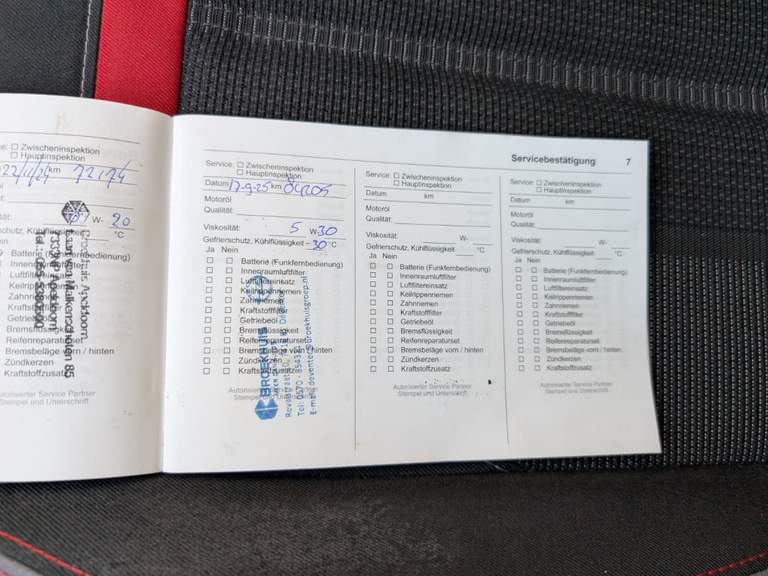 Servicebestätigung 7
Zwischeninspektion
Hauptinspektion
22/11/24 km 72174
W- 20
°C
Batterie (Funkfernbedienung)
Innenraumluftfilter
Bremsflüssigkeit
Reifenreparaturset
Bremsbeläge vorn / hinten
Zündkerzen
Kraftstoffzusatz
Autorisierter Service Partner
Stempel und Unterschrift
Service: Zwischeninspektion
Hauptinspektion
Datum 17-9-25 km
Motoröl
Qualität:
Viskosität: 5 W-30
Gefrierschutz, Kühlflüssigkeit -30 °C
Ja Nein
Batterie (Funkfernbedienung)
Innenraumluftfilter
Luftfiltereinsatz
Keilrippenriemen
Zahnriemen
Kraftstofffilter
Getriebeöl
Bremsflüssigkeit
Reifenreparaturset
Bremsbeläge vorn / hinten
Zündkerzen
Kraftstoffzusatz
BROEKHUIS
Autorisierter Service Partner
Stempel und Unterschrift
Service: Zwischeninspektion
Hauptinspektion
Datum km
Motoröl
Qualität:
Viskosität: W-
Gefrierschutz, Kühlflüssigkeit °C
Ja Nein
Batterie (Funkfernbedienung)
Innenraumluftfilter
Luftfiltereinsatz
Keilrippenriemen
Zahnriemen
Kraftstofffilter
Getriebeöl
Bremsflüssigkeit
Reifenreparaturset
Bremsbeläge vorn / hinten
Zündkerzen
Kraftstoffzusatz
Autorisierter Service Partner
Stempel und Unterschrift
Service: Zwischeninspektion
Hauptinspektion
Datum km
Motoröl
Qualität:
Viskosität: W-
Gefrierschutz, Kühlflüssigkeit °C
Ja Nein
Batterie (Funkfernbedienung)
Innenraumluftfilter
Luftfiltereinsatz
Keilrippenriemen
Zahnriemen
Kraftstofffilter
Getriebeöl
Bremsflüssigkeit
Reifenreparaturset
Bremsbeläge vorn / hinten
Zündkerzen
Kraftstoffzusatz
Autorisierter Service Partner
Stempel und Unterschrift